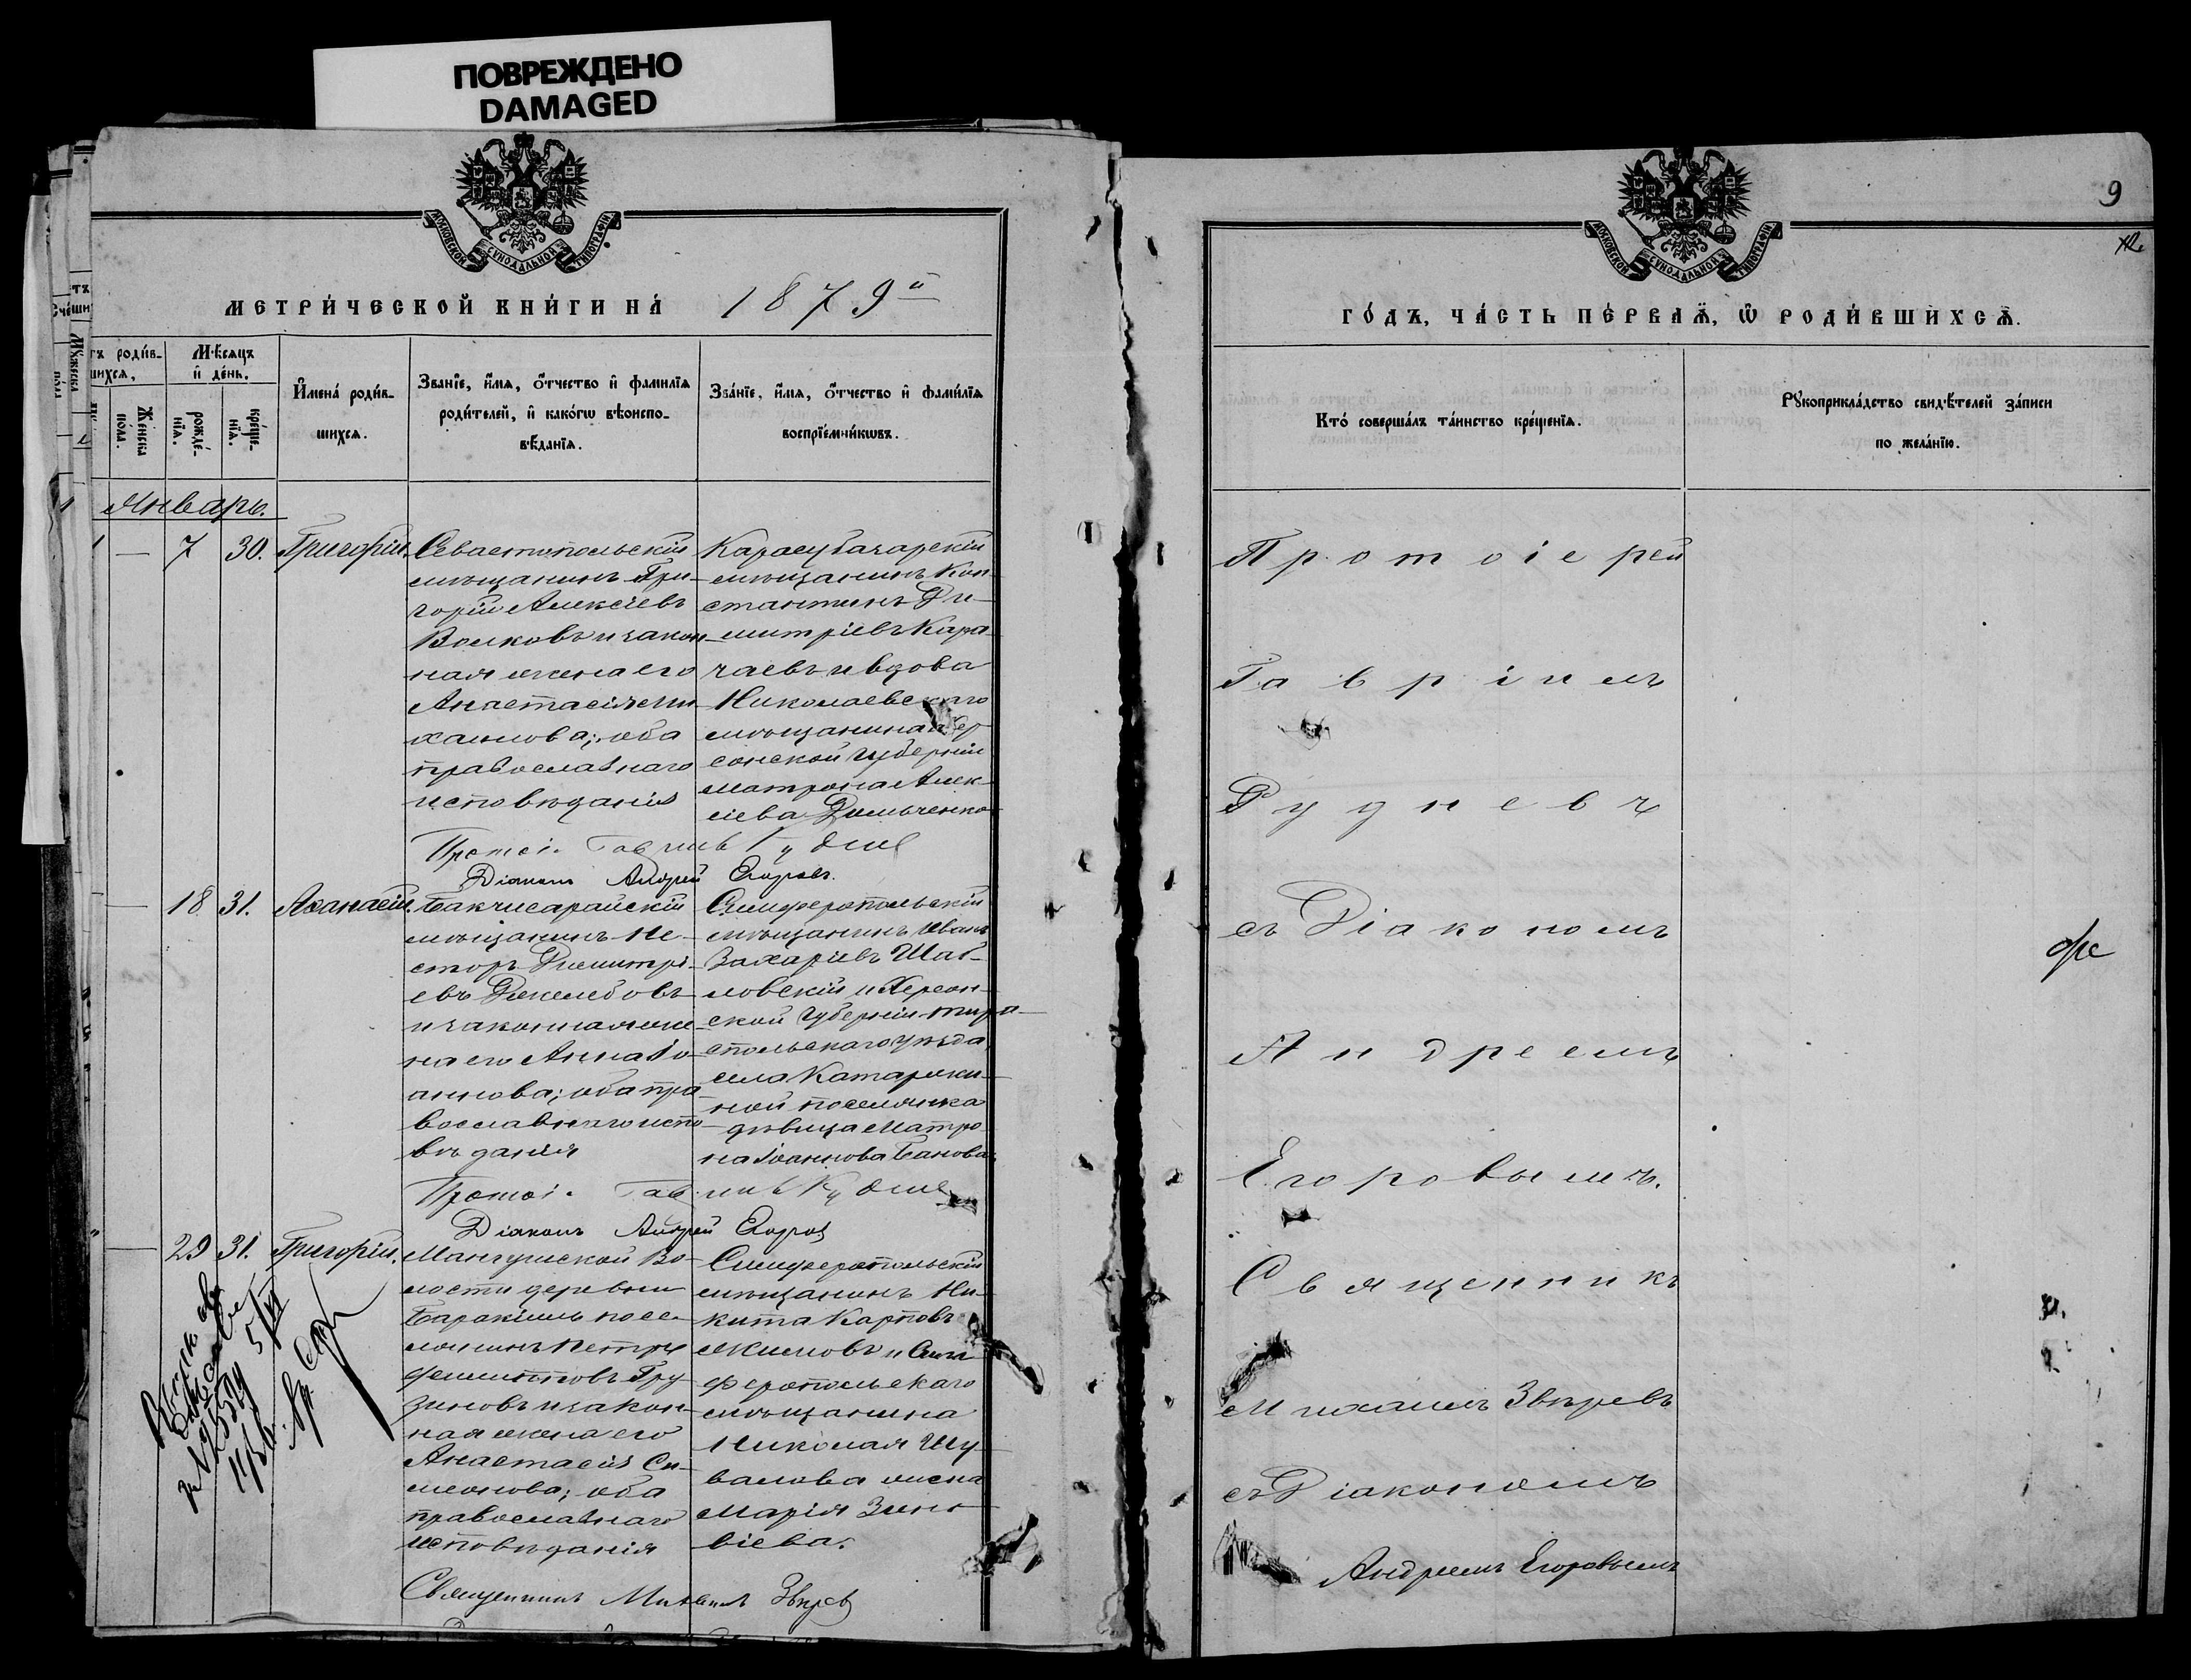 ПОВРЕЖДЕНО
DAMAGED
МОСКОВСКОЙ СѴНОДАЛЬНОЙ ТИПОГРАФІИ
МЕТРИ́ЧЕСКОЙ КНИ́ГИ НА́ 1879й
роди́в-
шихся,
Же́нска
по́ла.
Мѣ́сяцъ
и҆ де́нь.
рожде́-
нїѧ.
креще́-
нїѧ.
И҆мена̀ роди́в-
шихсѧ.
Зва́нїе, и҆́мѧ, ѻ҆́тчество и҆ фами́лїѧ
роди́телей, и҆ како́гѡ вѣроиспо-
вѣ́данїѧ.
Зва́нїе, и҆́мѧ, ѻ҆́тчество и҆ фами́лїѧ
воспрїе́мникѡвъ.
Январь.
— 7 30. Григорій.
Севастопольскій
мѣщанинъ Гри-
горій Алексіевъ
Волковъ и закон-
ная жена его
Анастасія Ми-
хаилова; оба
православнаго
исповѣданія
Карасубазарскій
мѣщанинъ Кон-
стантинъ Ди-
митріевъ Кара-
чаевъ и вдова
Николаевскаго
мѣщанина Хер-
сонской губерніи
Матрона Алек-
сіева
Протоі.
Діаконъ Андрей Егоровъ.
— 18 31. Аѳанасій.
Бакчисарайскій
мѣщанинъ Не-
сторъ Димитрі-
евъ
и законная же-
на его Анна Іо-
аннова; оба пра-
вославнаго испо-
вѣданія
Симферопольскій
мѣщанинъ Иванъ
Захаріевъ Шаб-
ловскій и Херсон-
ской губерніи Тира-
спольскаго уѣзда,
села Катаржи-
ной поселянка
дѣвица Матро-
на Іоаннова Банова.
Протоі.
Діаконъ Андрей Егоровъ
— 29 31. Григорій.
Мангушской Во-
лости деревни
посе-
лянинъ Петръ
Филипповъ Гру-
зиновъ и закон-
ная жена его
Анастасія Си-
меонова; оба
православнаго
исповѣданія
Симферопольскій
мѣщанинъ Ни-
кита Карповъ
Якимовъ и Сим-
феропольскаго
мѣщанина
Николая Шу-
валова жена
Марія Зино-
віева.
Священникъ Михаилъ Звѣревъ
9
МОСКОВСКОЙ СѴНОДАЛЬНОЙ ТИПОГРАФІИ
ГО́ДЪ, ЧА́СТЬ ПЕ́РВАѦ, Ѡ҆ РОДИ́ВШИХСѦ.
Кто̀ соверша́лъ та́инство креще́нїѧ.
Рꙋкоприкла́дство свидѣ́телей за́писи
по жела́нїю.
Протоіерей
Гавріилъ
Рудневъ
съ Діакономъ
Андреемъ
Егоровымъ.
Священникъ
Михаилъ Звѣревъ
съ Діакономъ
Андреемъ Егоровымъ